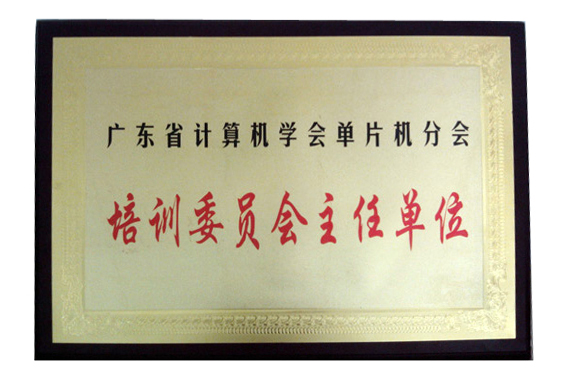 广东省计算机学会单片机分会
培训委员会主任单位